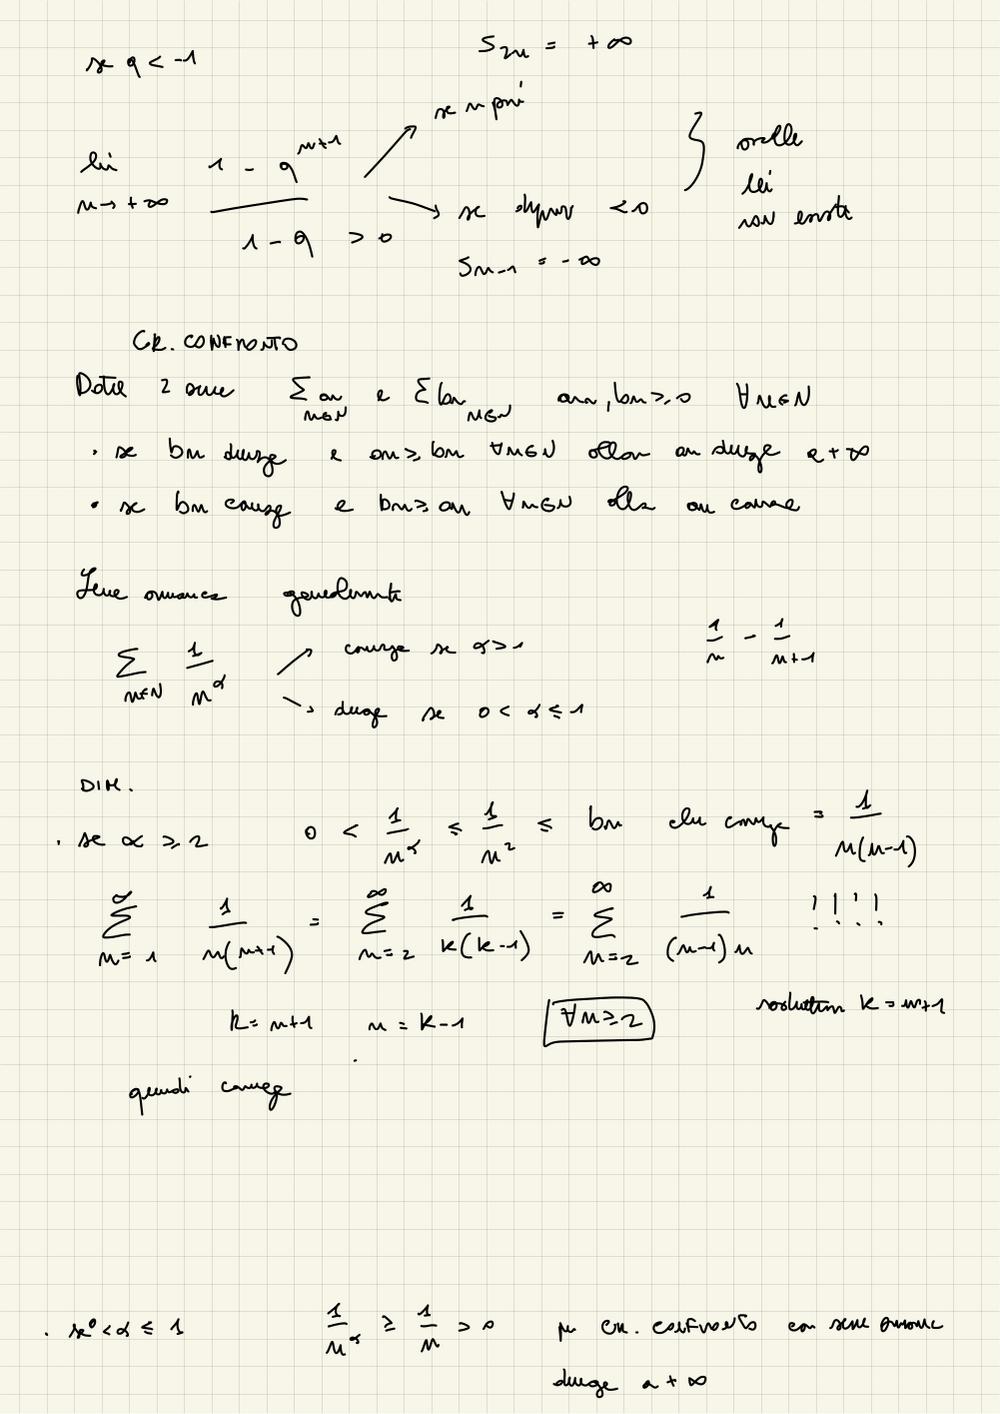 se q < -1
S_{2n} = +∞
se n pari
lim n→+∞ (1 - q^{n+1}) / (1 - q > 0)
se dispari < 0
S_{n-1} = -∞
} oralle
lim
non esiste
CR. CONFRONTO
Date 2 serie Σ_{n∈N} an e Σ bn_{n∈N} an, bn ≥ 0 ∀n∈N
• se bn diverge e an ≥ bn ∀n∈N allora an diverge a +∞
• se bn converge e bn ≥ an ∀n∈N allora an converge
Serie armonica generalizzata
Σ_{n∈N} 1/n^α
converge se α > 1
diverge se 0 < α ≤ 1
1/n - 1/(n+1)
DIM.
• se α ≥ 2 0 < 1/n^α ≤ 1/n² ≤ bn che converge = 1/(n(n-1))
Σ_{n=1}^{∞} 1/(n(n+1)) = Σ_{n=2}^{∞} 1/(k(k-1)) = Σ_{n=2}^{∞} 1/((n-1)n) !!!!
k = n+1 n = k-1 ∀n≥2 k = n+1
quindi converge
• se 0 < α ≤ 1 1/n^α ≥ 1/n > 0 per CR. CONFRONTO con serie armonica
diverge a +∞